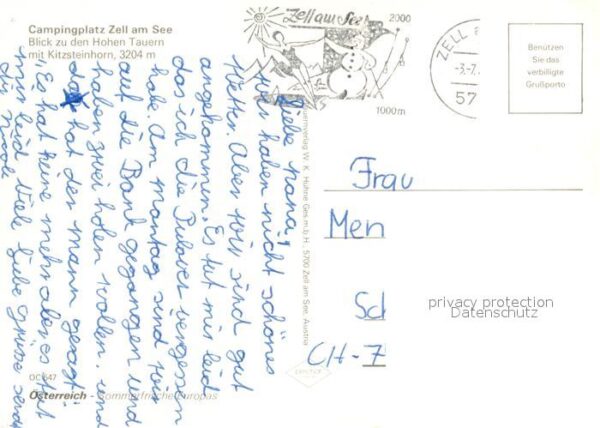 Campingplatz Zell am See
Blick zu den Hohen Tauern
mit Kitzsteinhorn, 3204 m
Zell am See
2000
1000m
ZELL
-3.-7.
57
Benützen
Sie das
verbilligte
Grußporto
Liebe Mama,
Wir haben nicht schönes
Wetter. Aber wir sind gut
angekommen. Es tut mir leid
das ich die Pulver vergessen
habe. Am montag sind wir
auf die Bank gegangen und
haben zwei holen wollen. und
da hat der mann gesagt:
"Es hat keine mehr aber es tut
mir leid. Viele liebe grüsse sendet
dir Nicole
W. K. Huhne Ges.m.b.H. 5700 Zell am See, Austria
Frau
Men
Sch
CH-7
privacy protection
Datenschutz
OC 647
Österreich - Sommerfrische Europas